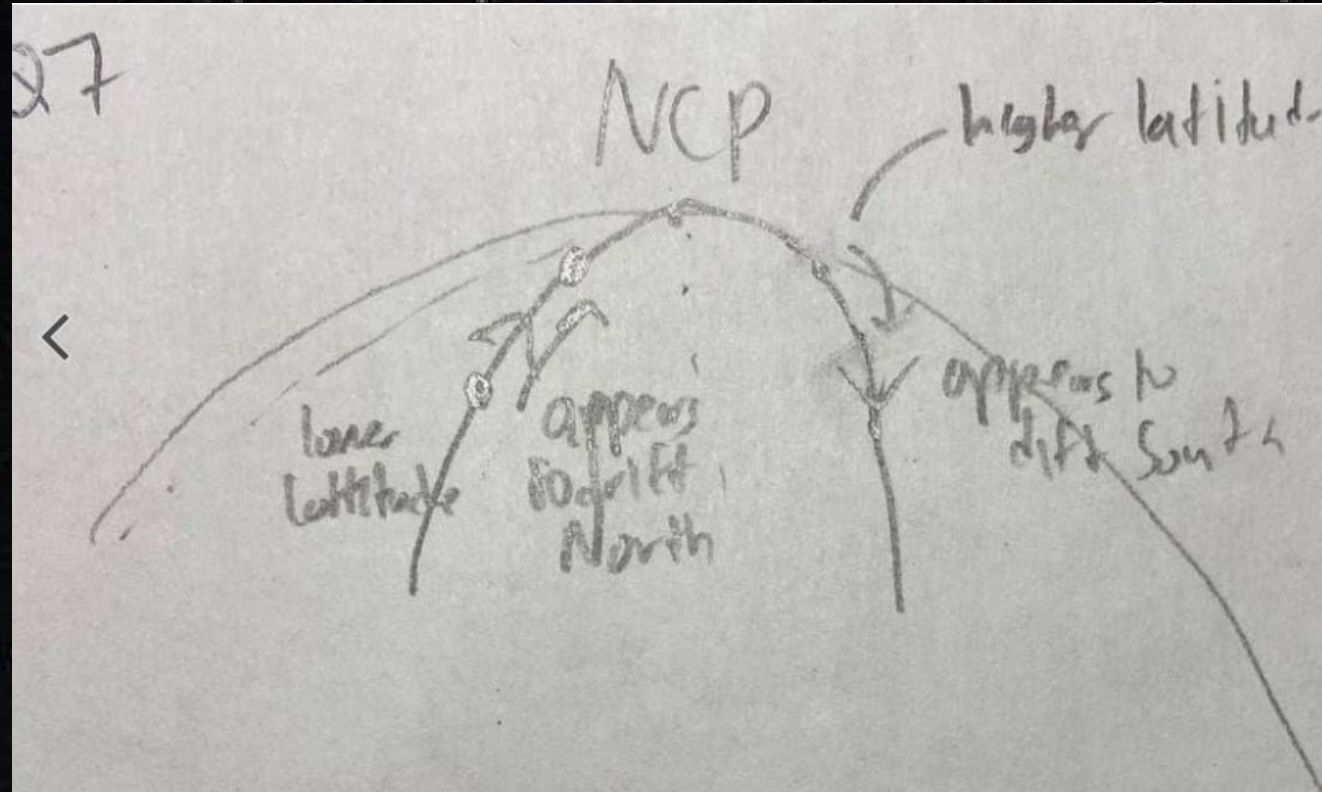 Q7
NCP
higher latitud
lower
lattitude
appears
to drift
North
appears to
dift South